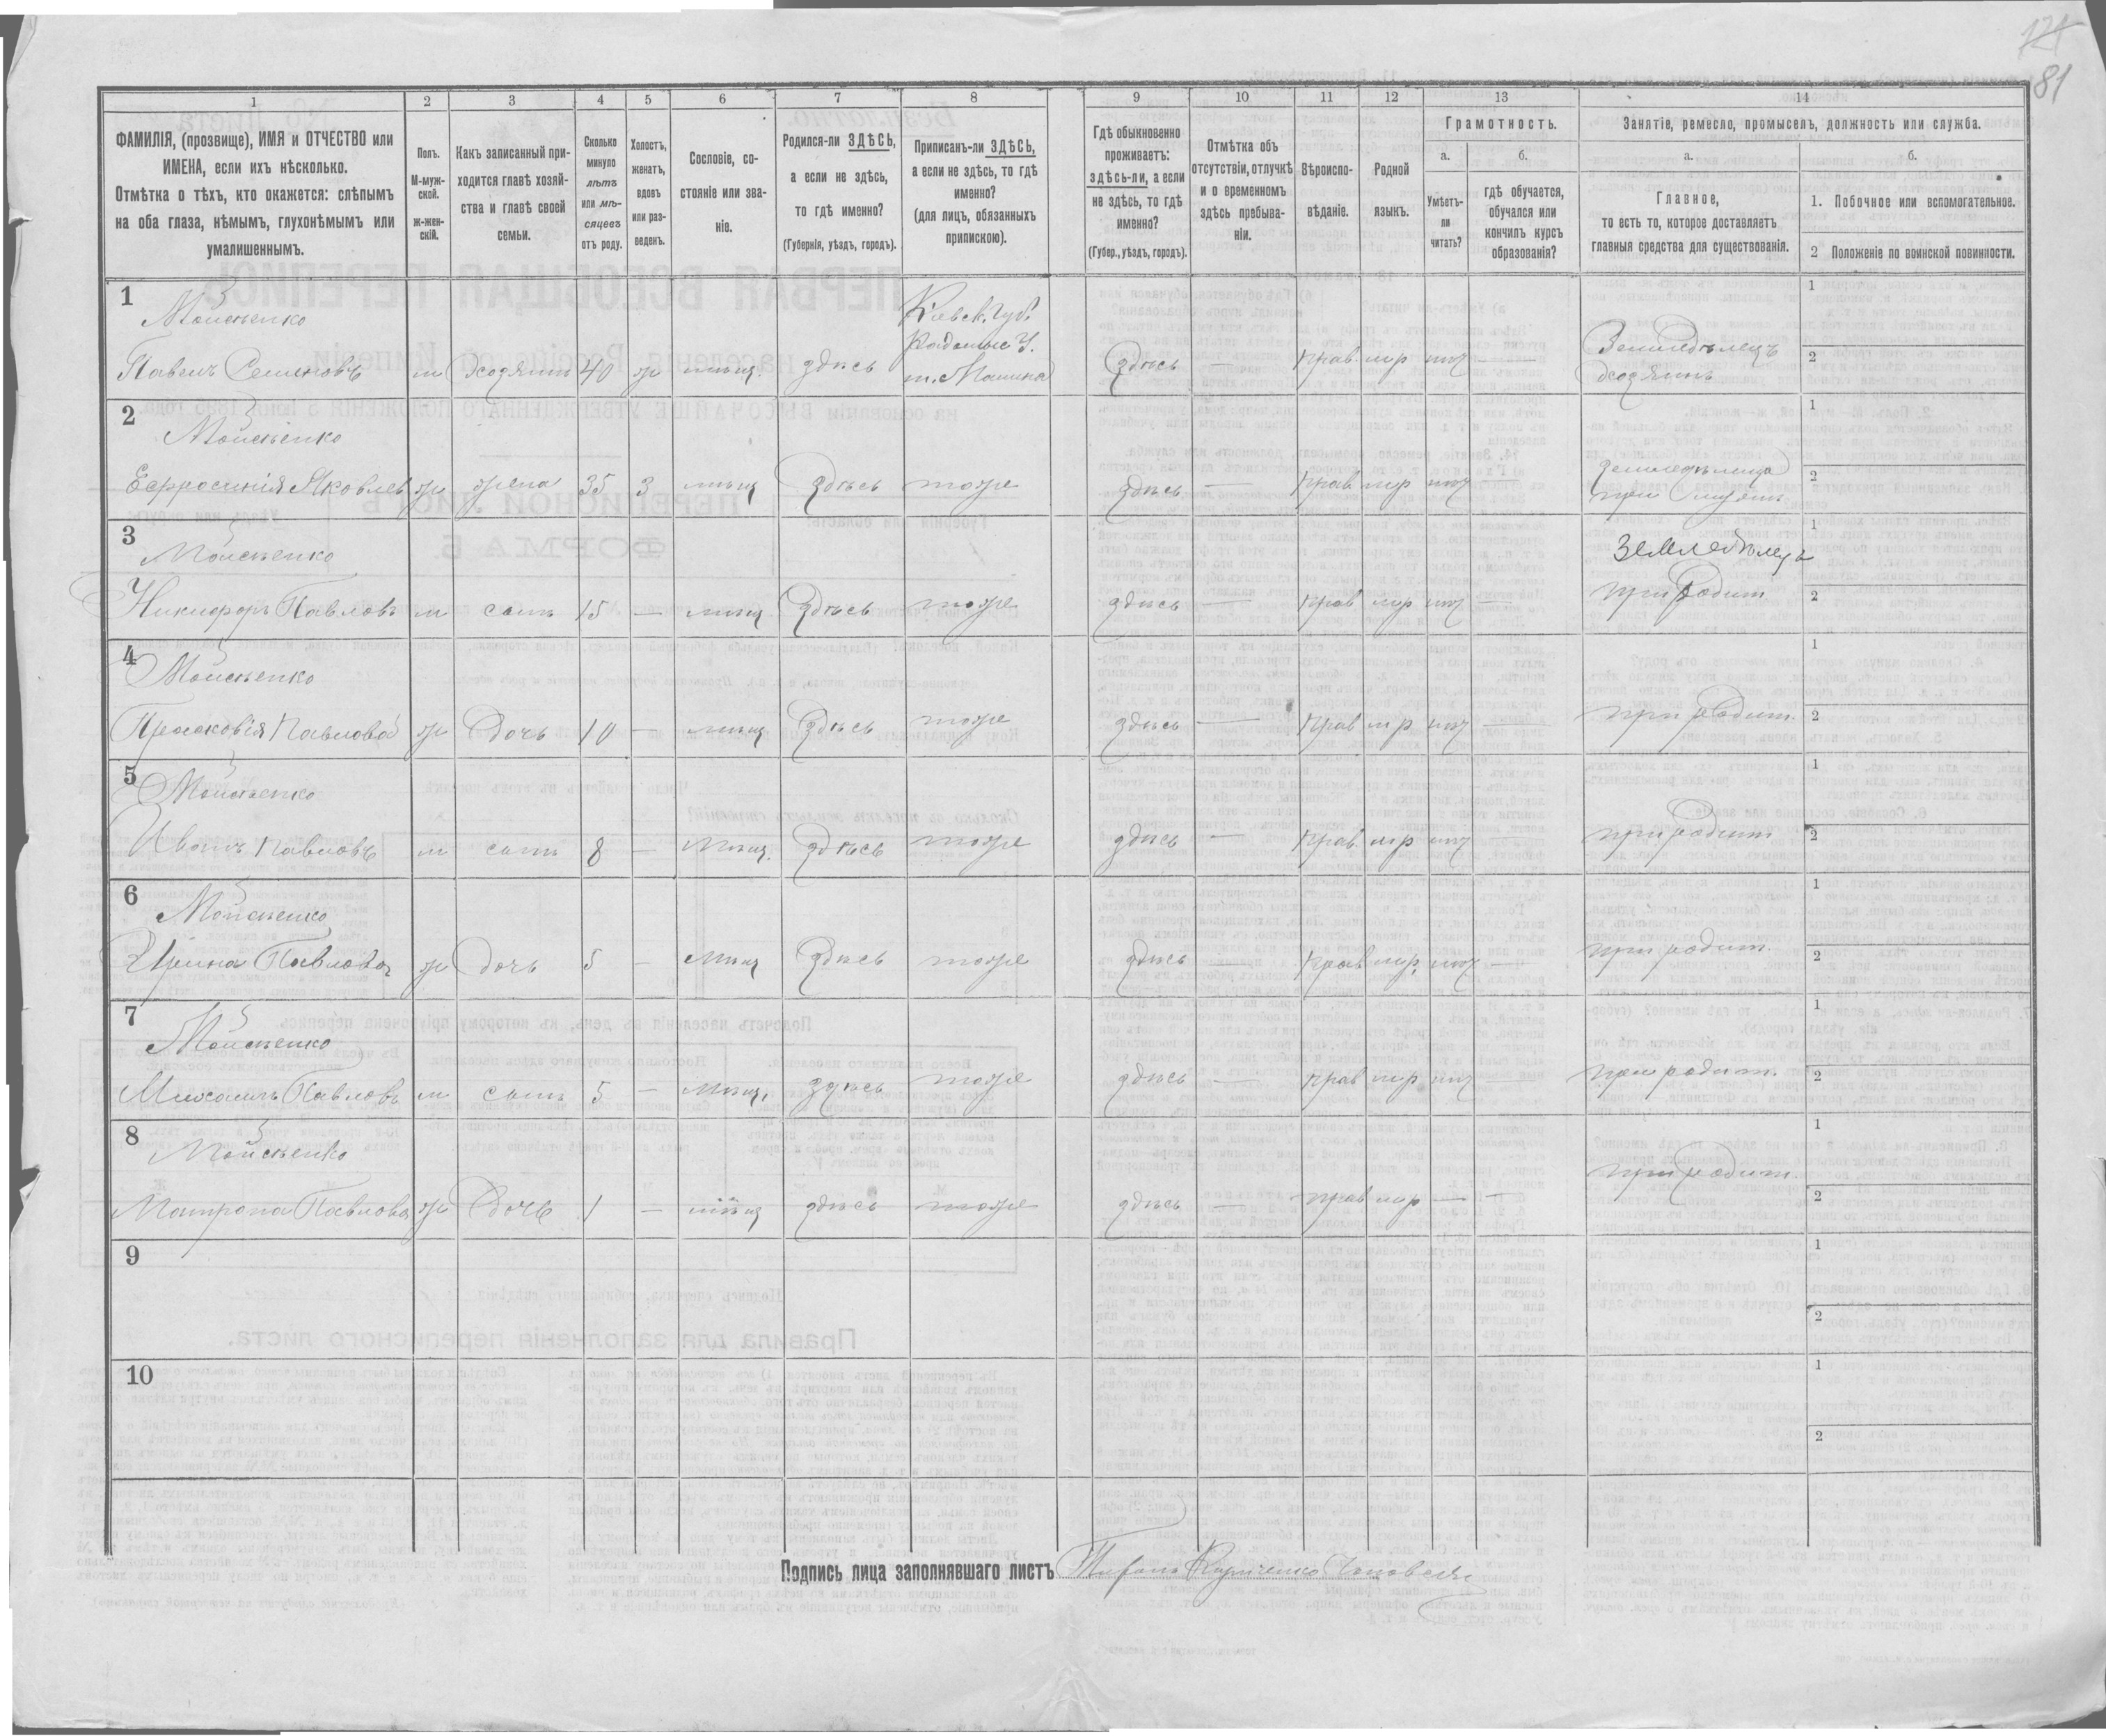 121
81
1 2 3 4 5 6 7 8 9 10 11 12 13 14
ФАМИЛІЯ, (прозвище), ИМЯ и ОТЧЕСТВО или
ИМЕНА, если ихъ нѣсколько.
Отмѣтка о тѣхъ, кто окажется: слѣпымъ
на оба глаза, нѣмымъ, глухонѣмымъ или
умалишеннымъ.
Полъ.
М-муж-
ской.
ж-жен-
скій.
Какъ записанный при-
ходится главѣ хозяй-
ства и главѣ своей
семьи.
Сколько
минуло
лѣтъ
или мѣ-
сяцевъ
отъ роду.
Холостъ,
женатъ,
вдовъ
или раз-
веденъ.
Сословіе, со-
стояніе или зва-
ніе.
Родился-ли ЗДѢСЬ,
а если не здѣсь,
то гдѣ именно?
(Губернія, уѣздъ, городъ).
Приписанъ-ли ЗДѢСЬ,
а если не здѣсь, то гдѣ
именно?
(для лицъ, обязанныхъ
припискою).
Гдѣ обыкновенно
проживаетъ:
здѣсь-ли, а если
не здѣсь, то гдѣ
именно?
(Губер., уѣздъ, городъ).
Отмѣтка объ
отсутствіи, отлучкѣ
и о временномъ
здѣсь пребыва-
ніи.
Вѣроиспо-
вѣданіе.
Родной
языкъ.
Грамотность.
а.
Умѣетъ-
ли
читать?
б.
гдѣ обучается,
обучался или
кончилъ курсъ
образованія?
Занятіе, ремесло, промыселъ, должность или служба.
а.
Главное,
то есть то, которое доставляетъ
главныя средства для существованія.
б.
1. Побочное или вспомогательное.
2 Положеніе по воинской повинности.
1
Мойсѣенко
Кіевск. губ.
Радомыс У.
м. Малина
Павелъ Семеновъ м Хозяинъ 40 ж мѣщ. здѣсь
Здѣсь — прав. мр нѣт —
Земледѣлецъ
хозяинъ
1
2
2
Мойсѣенко
Ефросинія Яковлев ж жена 35 з мѣщ Здѣсь тоже здѣсь — прав мр нѣт
земледѣлица
при мужѣ
1
2
3
Мойсѣенко
Никифоръ Павловъ м сынъ 15 — мѣщ Здѣсь тоже здѣсь — прав мр нѣт —
земледѣлецъ
при родит
1
2
4
Мойсѣенко
Прасковія Павлова ж Дочь 10 — мѣщ Здѣсь тоже здѣсь — прав мр нѣт — при родит.
1
2
5
Мойсѣенко
Иванъ Павловъ м сынъ 8 — мѣщ. здѣсь тоже здѣсь — прав. мр нѣт — при родит
1
2
6
Мойсѣенко
Ирина Павлова ж дочь 5 — мѣщ Здѣсь тоже здѣсь — прав мр. нѣт — при родит.
1
2
7
Мойсѣенко
Михаилъ Павловъ м сынъ 5 — мѣщ. здѣсь тоже здѣсь — прав мр нѣт — при родит.
1
2
8
Мойсѣенко
Матрона Павлова ж Дочь 1 — мѣщ здѣсь тоже здѣсь — прав мр — — при родит.
1
2
9
1
2
10
1
2
Подпись лица заполнявшаго листъ